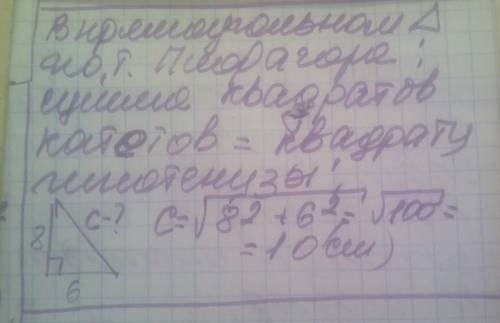 В прямоугольном Δ
по т. Пифагора:
сумма квадратов
катетов = квадрату
гипотенузы!
8 c-? c=√8²+6²=√100=
=10(см)
6